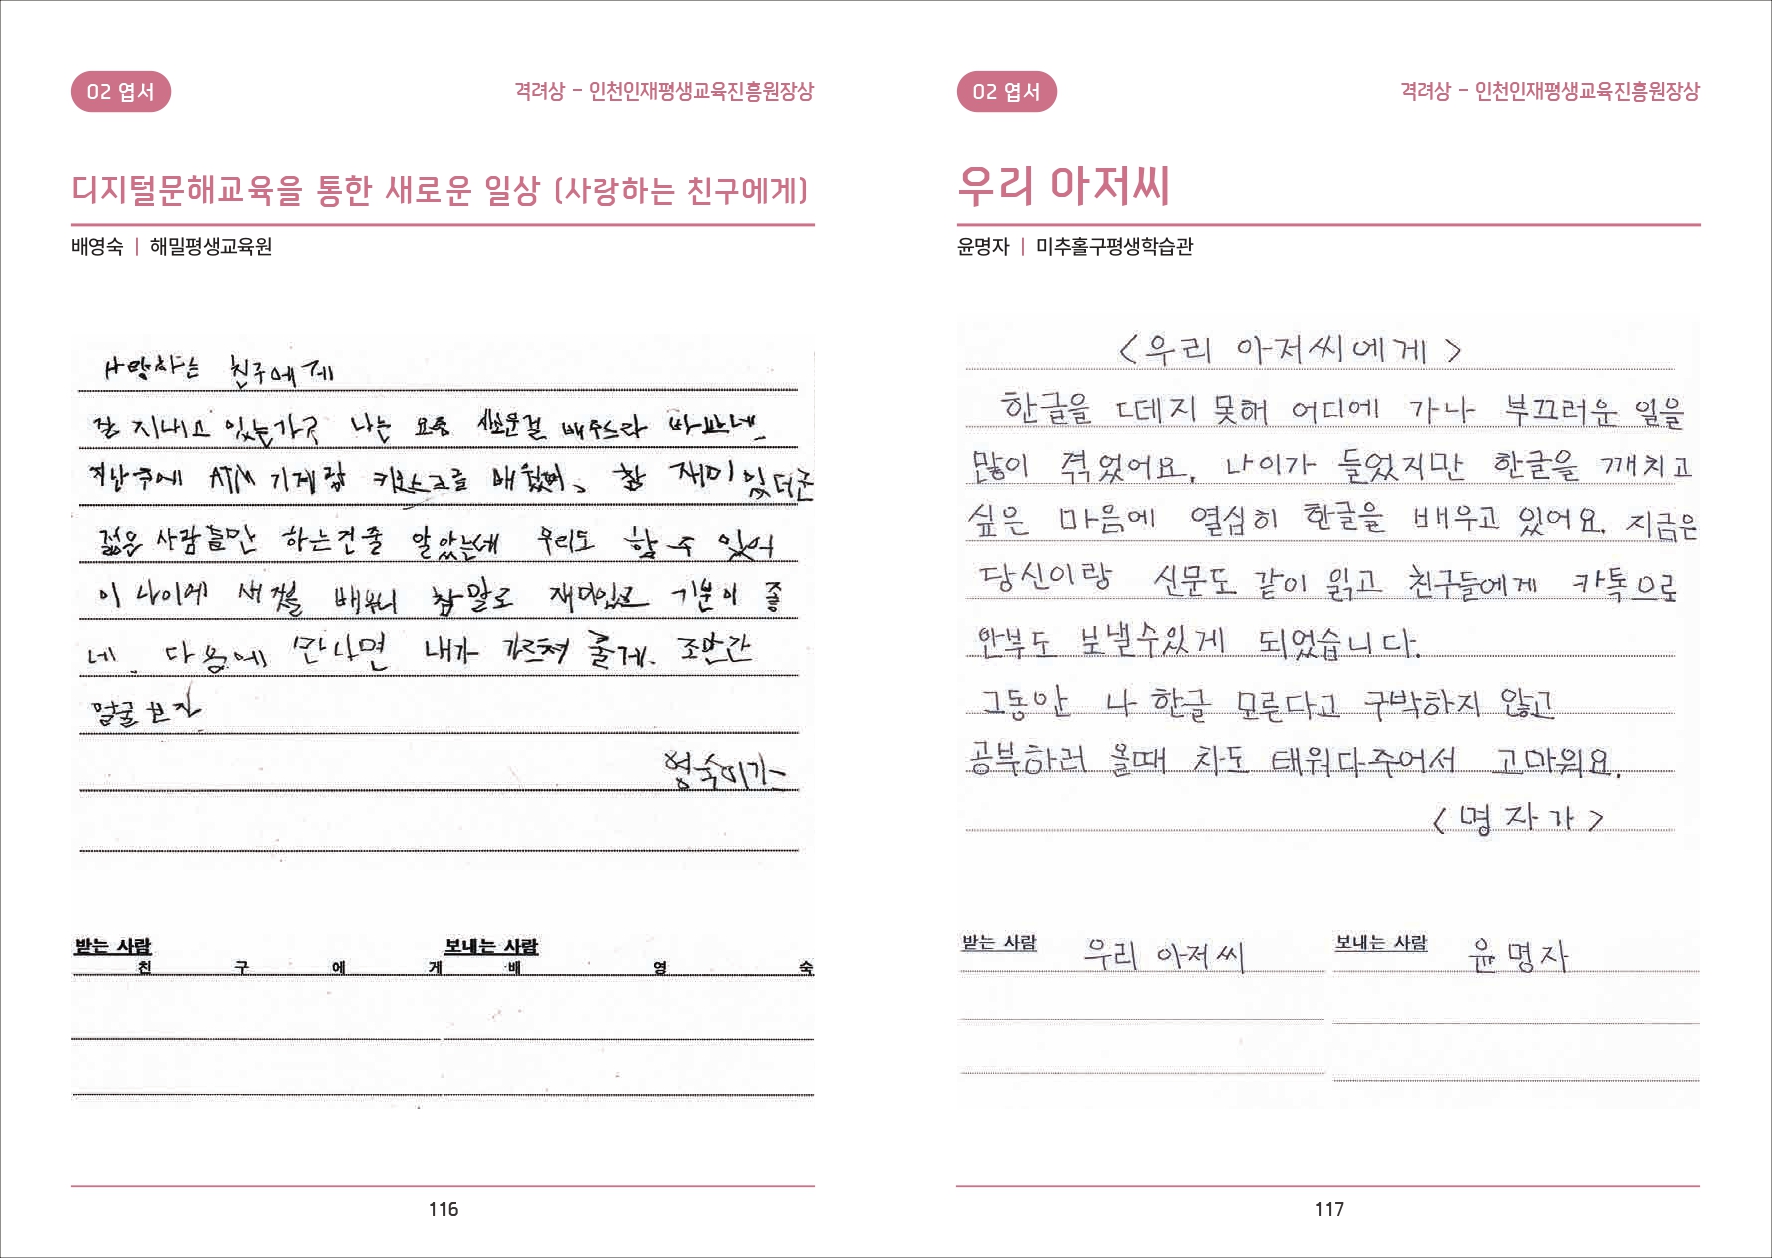 02 엽서
격려상 - 인천인재평생교육진흥원장상
디지털문해교육을 통한 새로운 일상 (사랑하는 친구에게)
배영숙 | 해밀평생교육원
사랑하는 친구에게
잘 지내고 있는가굿 나는 요즘 새로운걸 배우느라 바쁘네
지난주에 ATM 기계랑 키오스크를 배웠어. 참 재미있더군
젊은 사람들만 하는건줄 알았는데 우리도 할 수 있어
이 나이에 새걸 배우니 참말로 재미있고 기분이 좋
네. 다음에 만나면 내가 가르쳐 줄게. 조만간
얼굴 보자
영숙이가
받는 사람
친구에게
보내는 사람
배영숙
116
02 엽서
격려상 - 인천인재평생교육진흥원장상
우리 아저씨
윤명자 | 미추홀구평생학습관
<우리 아저씨에게>
한글을 떼지 못해 어디에 가나 부끄러운 일을
많이 격었어요. 나이가 들었지만 한글을 깨치고
싶은 마음에 열심히 한글을 배우고 있어요. 지금은
당신이랑 신문도 같이 읽고 친구들에게 카톡으로
안부도 보낼수있게 되었습니다.
그동안 나 한글 모른다고 구박하지 않고
공부하러 올때 차도 태워다주어서 고마워요.
<명자가>
받는 사람 우리 아저씨
보내는 사람 윤명자
117